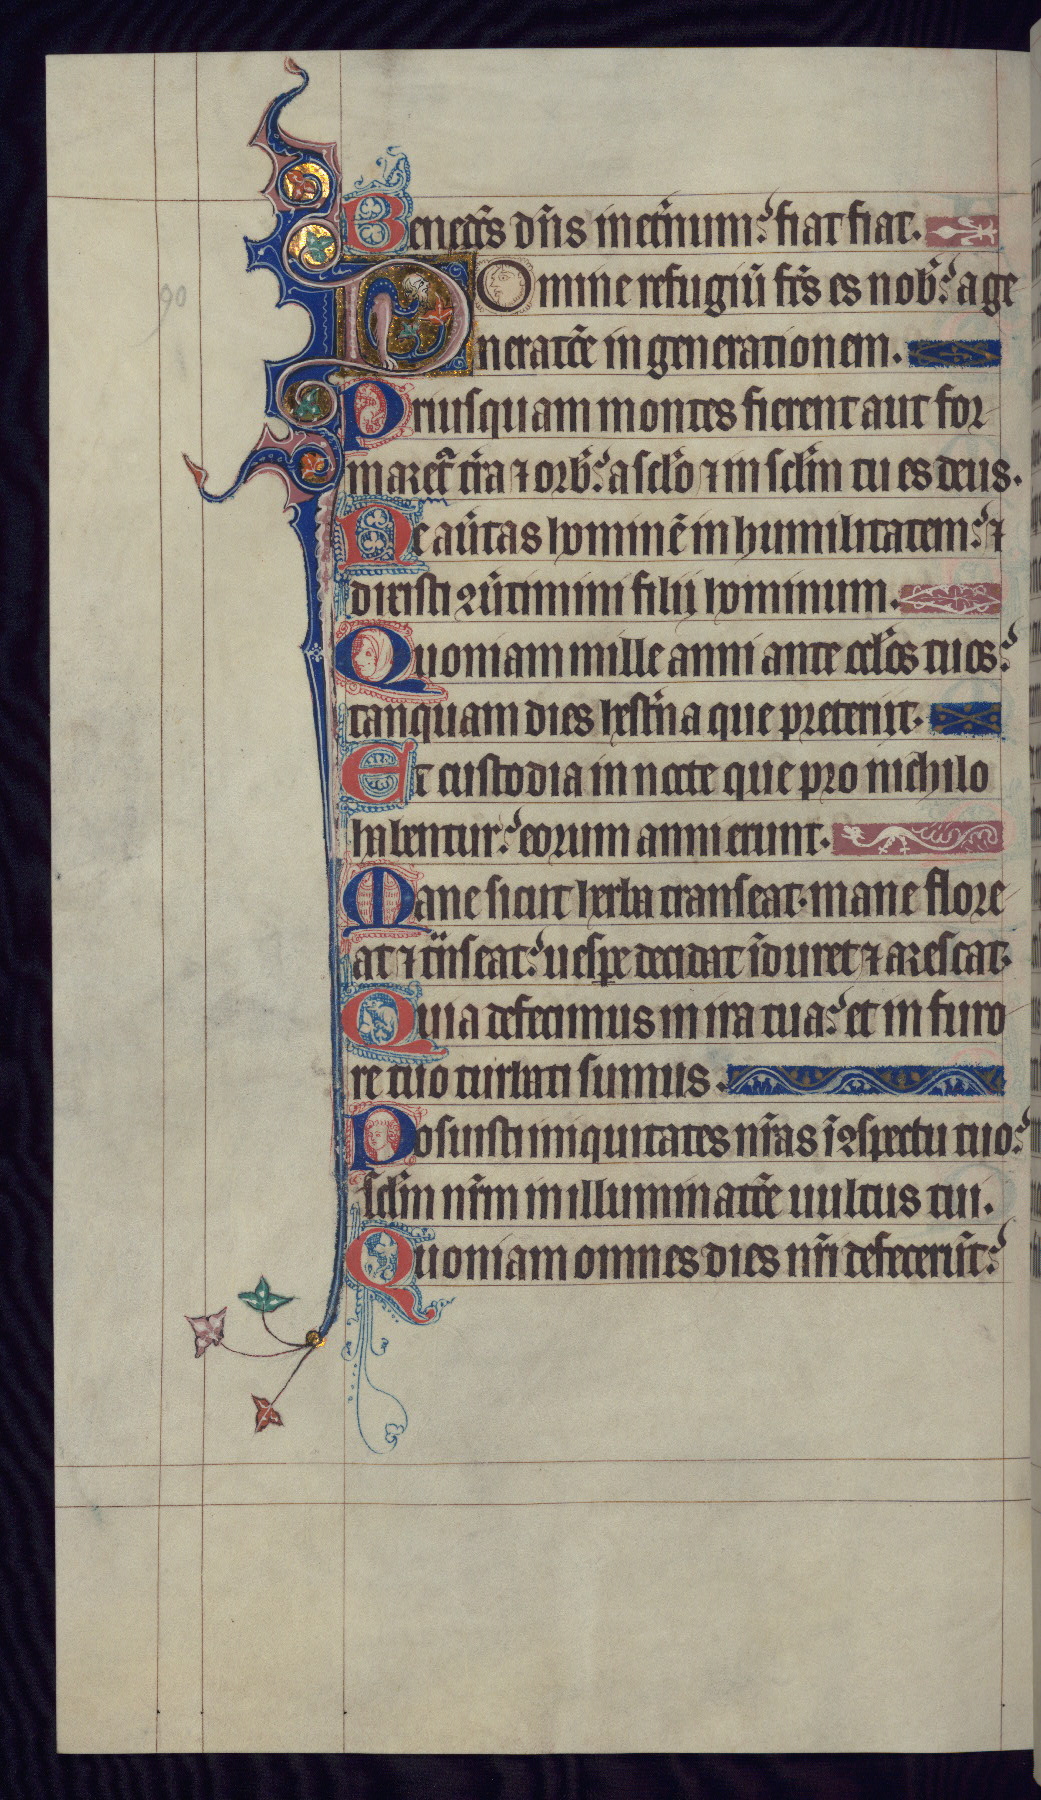 Benedc̄s dn̄s in et̄num᷒ fiat fiat.
DOmine refugiū fc̄s es nob̄᷒ a ge
neratōe in generationem.
90
Priusquam montes fierent aut for
maret᷑ t̄ra ⁊ orb̄᷒ a sclō ⁊ in sclm̄ tu es deus.
Ne aūtas hominē in humilitatem᷒ ⁊
dixisti ꝯūtimini filii hominum.
Quoniam mille anni ante oclōs tuos᷒
tanquam dies hest̄na que preteriit.
Et custodia in nocte que pro nichilo
habentur᷒ eorum anni erunt.
Mane sicut herba transeat. mane flore
at ⁊ t̄nseat᷒ uesꝑe decidat īduret ⁊ arescat.
Quia defecimus in ira tua᷒ et in furo
re tuo turbati sumus.
Posuisti iniquitates nr̄as ī ꝯspectu tuo᷒
sclm̄ nrm̄ in illuminatōe uultus tui.
Quoniam omnes dies nr̄i defecerūt᷒